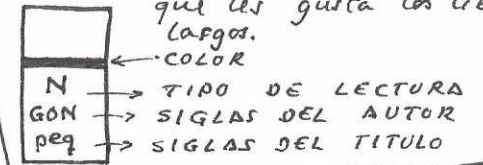 que les gusta los
largos.
COLOR
N → TIPO DE LECTURA
GON → SIGLAS DEL AUTOR
peq → SIGLAS DEL TITULO